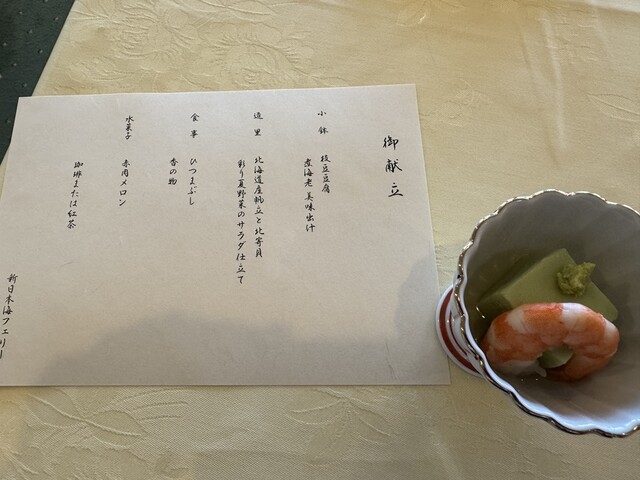 御献立
小鉢　枝豆豆腐
煮海老 美味出汁
造里　北海道産帆立と北寄貝
彩り夏野菜のサラダ仕立て
食事　ひつまぶし
香の物
水菓子　赤肉メロン
珈琲または紅茶
新日本海フェリー